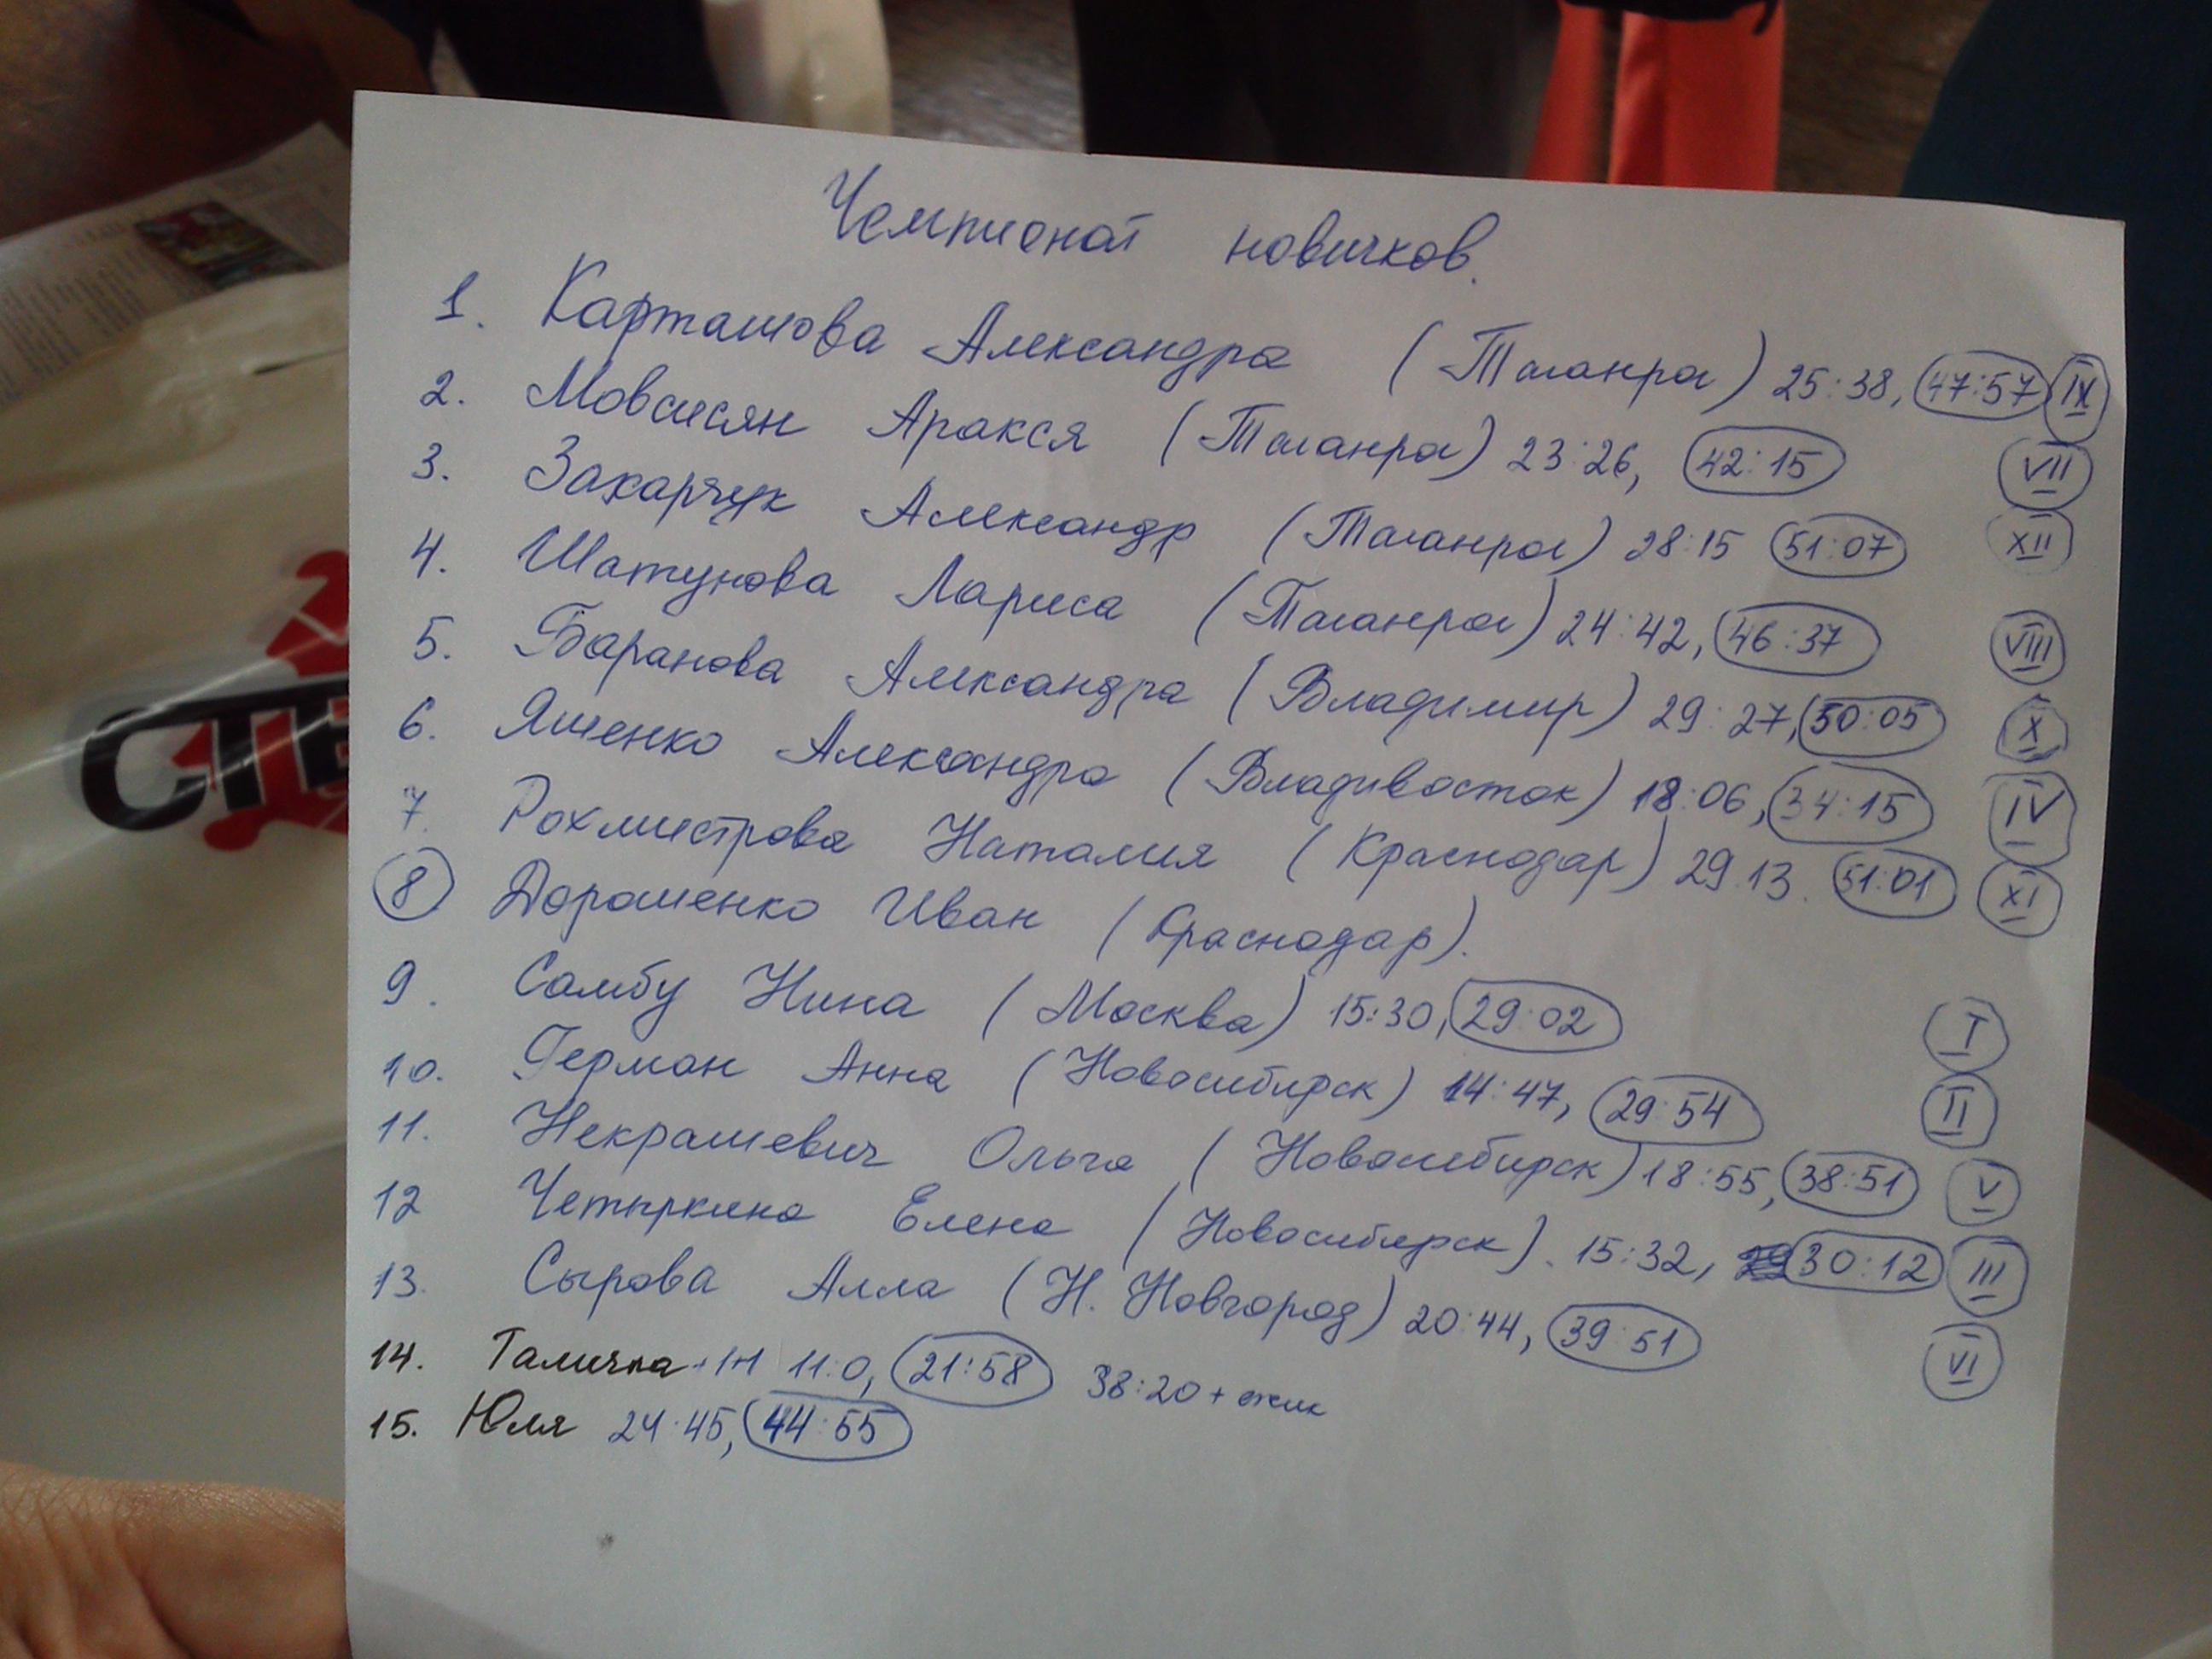 Чемпионат новичков.
1. Карташова Александра (Таганрог) 25:38, 47:57 IX
2. Мовсисян Аракся (Таганрог) 23:26, 42:15 VII
3. Захарчук Александр (Таганрог) 28:15 51:07 XII
4. Шатунова Лариса (Таганрог) 24:42, 46:37 VIII
5. Баранова Александра (Владимир) 29:27, 50:05 X
6. Яшенко Александра (Владивосток) 18:06, 34:15 IV
7. Рохмистрова Наталия (Краснодар) 29.13. 51:01 XI
8 Дорошенко Иван (Краснодар).
9. Самбу Нина (Москва) 15:30, 29:02 I
10. Герман Анна (Новосибирск) 14:47, 29:54 II
11. Некрашевич Ольга (Новосибирск) 18:55, 38:51 V
12 Четыркина Елена (Новосибирск). 15:32, 30:12 III
13. Сырова Алла (Н. Новгород) 20:44, 39:51 VI
14. Галичка 11:0, 21:58 38:20 +
15. Юля 24:45, 44:55
СТЕ